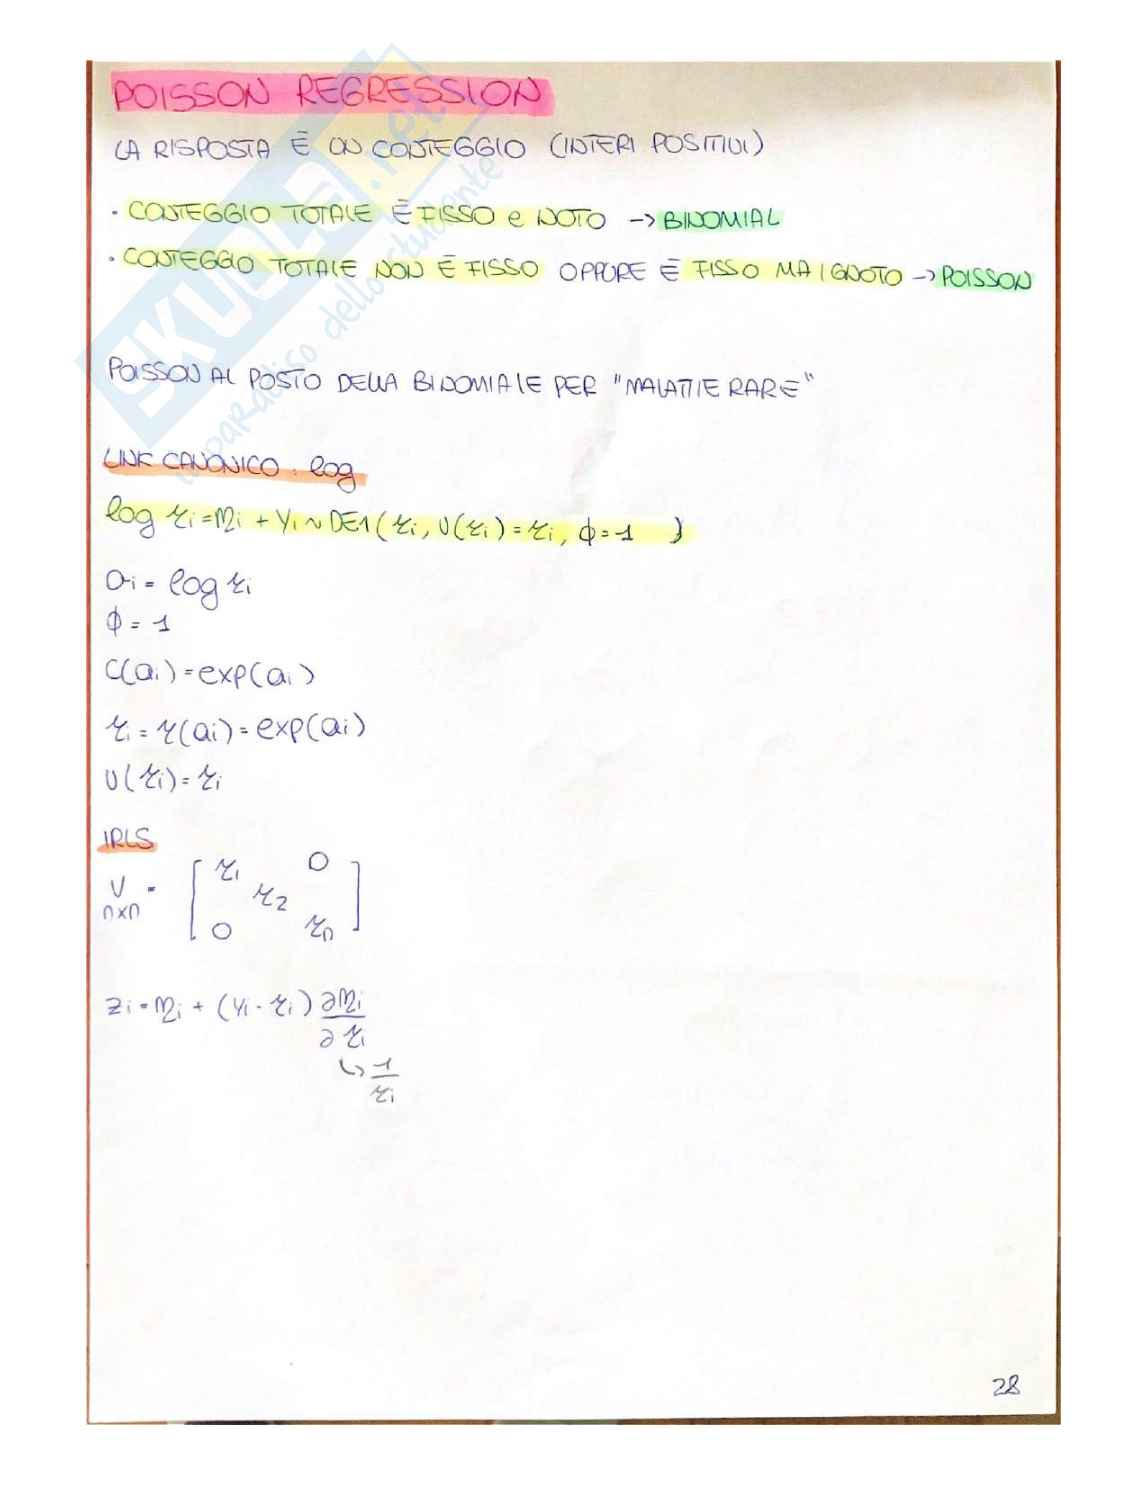 POISSON REGRESSION
LA RISPOSTA È UN CONTEGGIO (INTERI POSITIVI)
· CONTEGGIO TOTALE È FISSO e NOTO -> BINOMIAL
· CONTEGGIO TOTALE NON È FISSO OPPURE È FISSO MA IGNOTO -> POISSON
POISSON AL POSTO DELLA BINOMIALE PER "MALATTIE RARE"
LINK CANONICO: log
log μi = ηi + Yi ~ DE1(μi, V(μi) = μi, φ = 1 )
ai = log μi
φ = 1
C(ai) = exp(ai)
μi = μ(ai) = exp(ai)
V(μi) = μi
IRLS
V = [ μ1 0
n×n μ2
0 μn ]
zi = ηi + (yi - μi) ∂ηi
∂μi
↳ 1
μi
28
SKUOLA.net
il paradiso dello studente